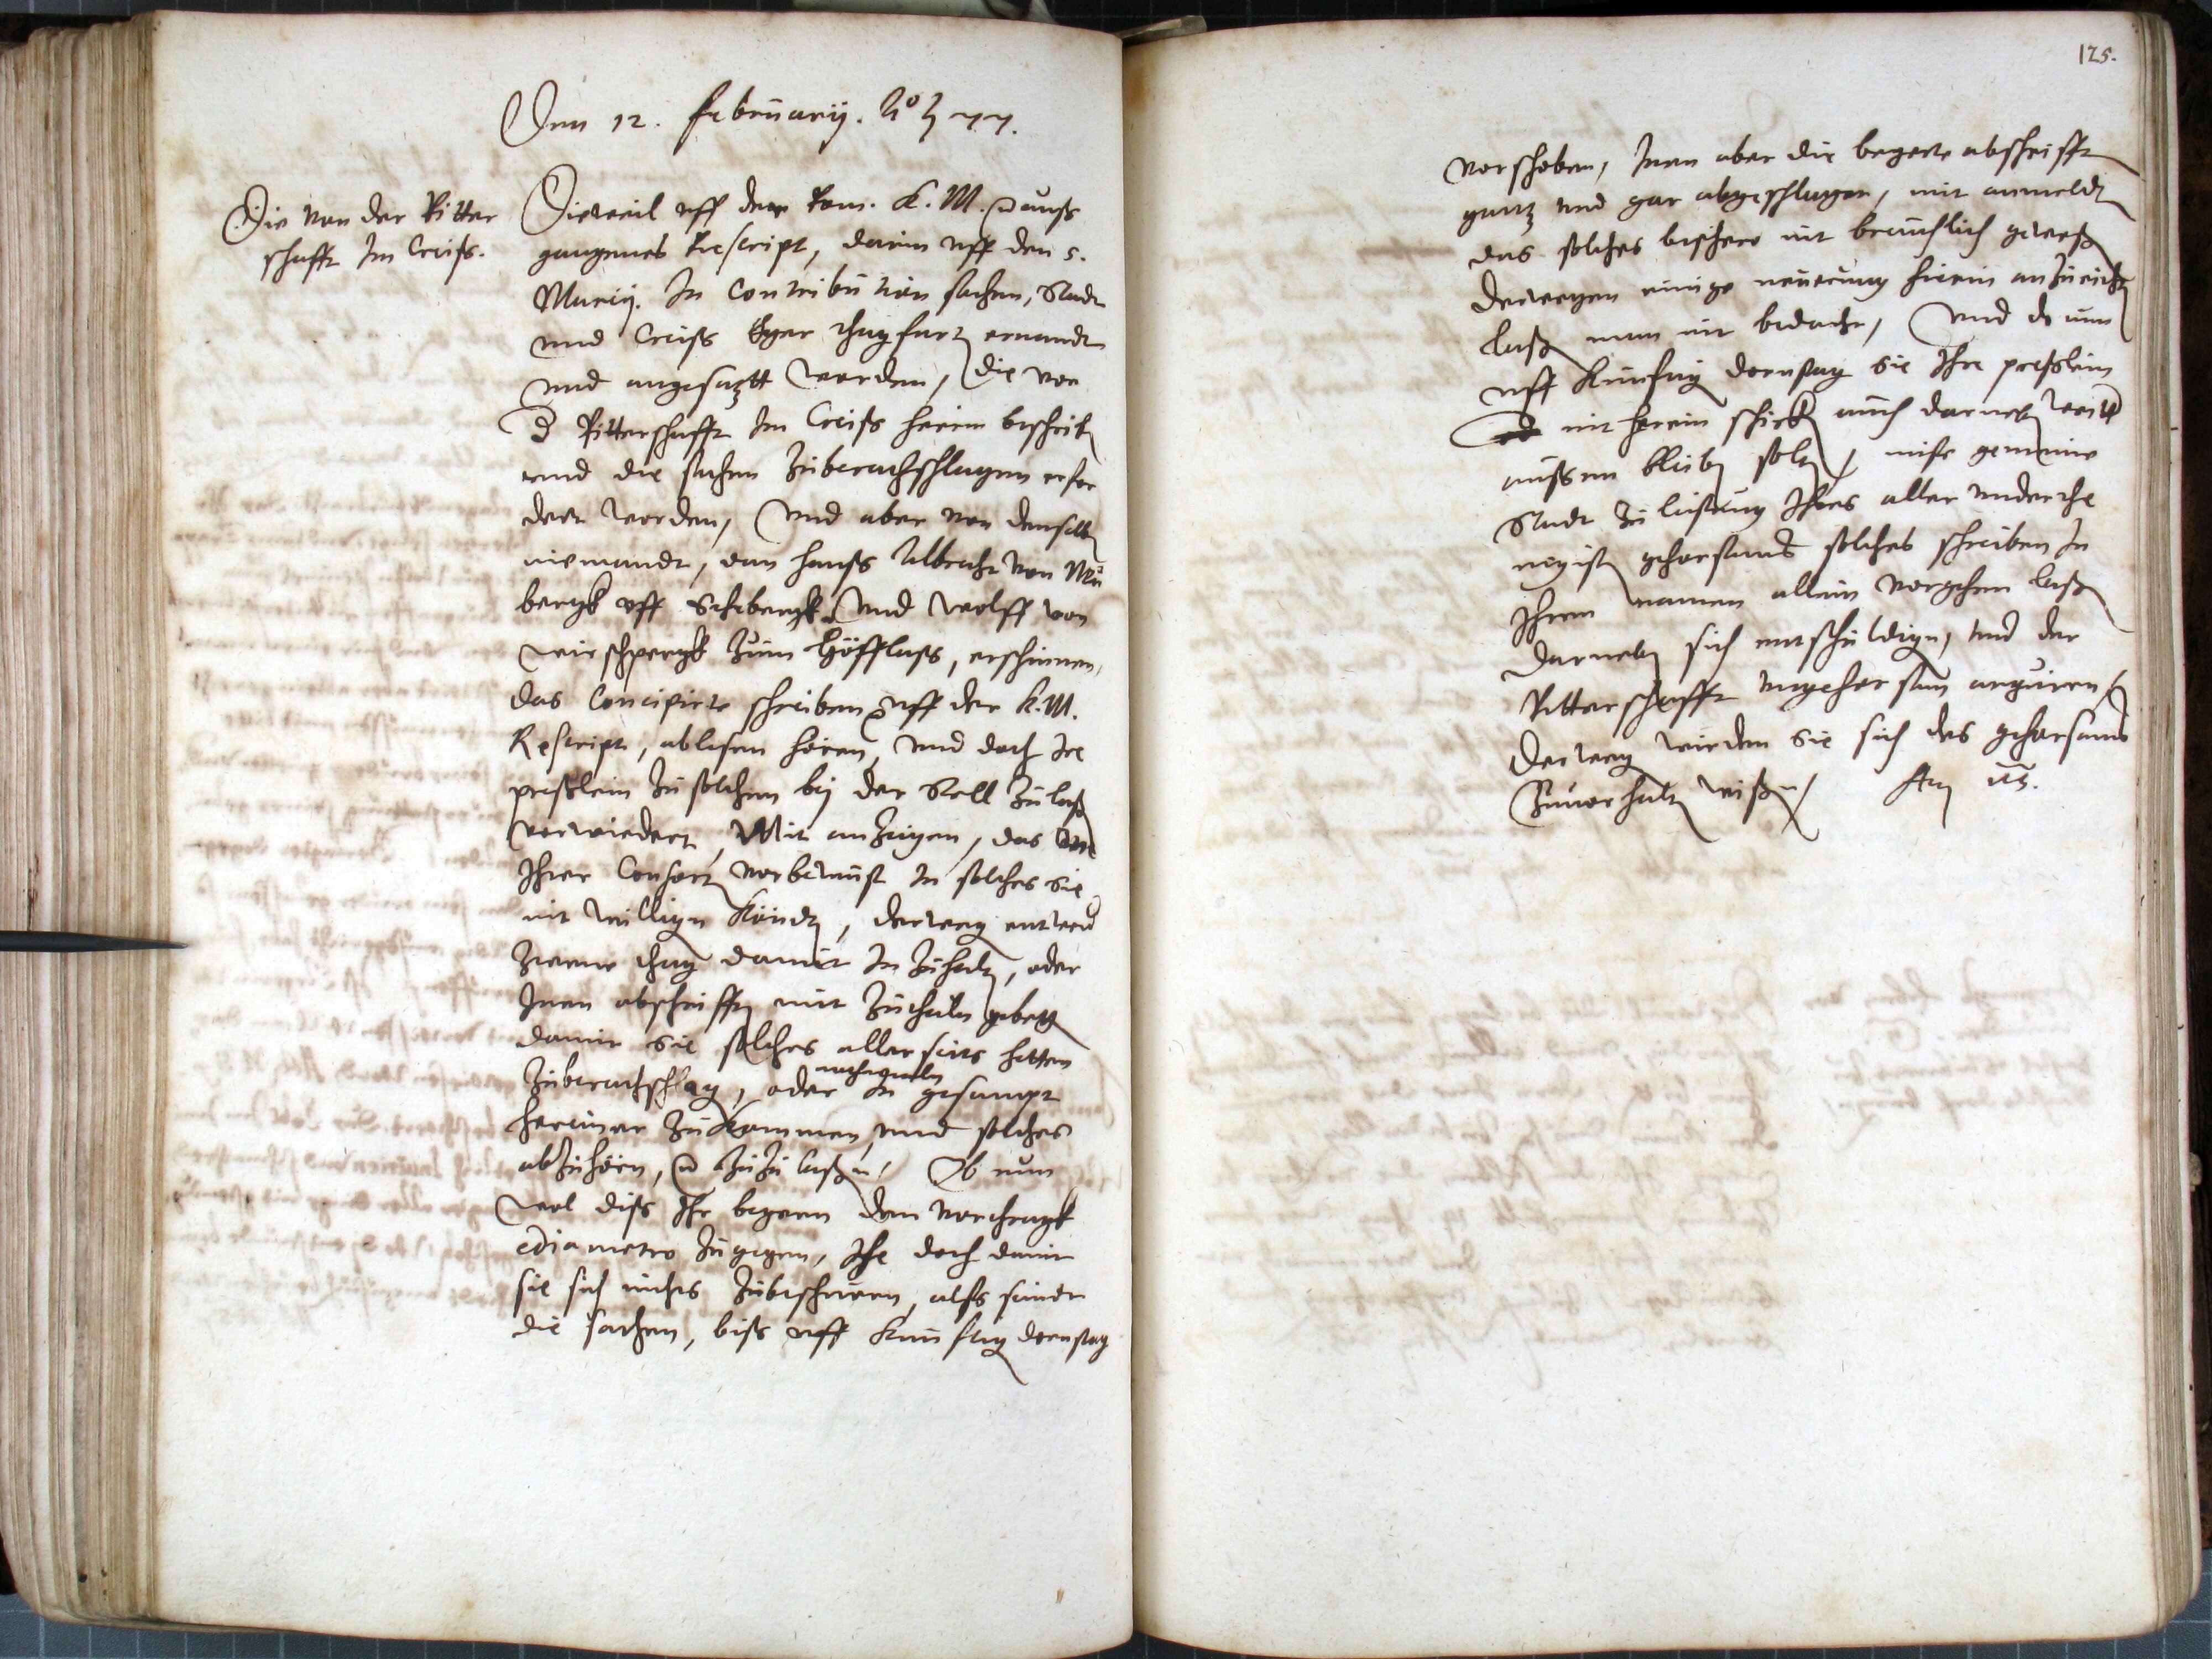 Den 12. februarij. Aº ꝛc 77.
Die von der Ritter
schafft Im Creiß.
Dieweil uff der Rom. K. M. ꝛc auß
gangenes Rescript, darin uff den 5.
Marcij. In Contribution sachen, Stadt
und Creiß Eger thagfart ernandt
und angesatztt worden, die von
d Ritterschafft Im Creiß herein beschrib
und die sachen zuberathschlagen erfor
dert worden, Und aber von denselb
niemandt, dan Hanß Albrecht von Mu
bergk uff Seeberg und Wolff von
Wirsperck zum Höfflaß, erschinen,
das Concipirte schreiben uff der K. M.
Rescript, ablesen hören, und doch Ire
pettschlein zu solchem bej der Stell zulaß
verwiedert, Mit anzeigen, das
Ihrer Consort vorbewust In solches sie
nit willigen köndt, derweg entwed
zweene thag damit In zuhalt, oder
Inen abschrifft mit zutheiln gebett
damit sie solches allerseits hetten
zuberathschlag, oder In gesampt
hereiner zukommen, und solches
abzuhörn, zuzulaßn / Ob nun
wol diß Ihr begern dem
e diametro zugegen, Ihe doch damit
sie sich nichts zubeschwern, alß seindt
die sachen, biß uff kunfftig dornstag
125.
vorschoben, Inen aber die begerte abschrifft
gantz und gar abgeschlagen, mit anmeldt
das solches bisher nit breuchlich geweß
derwegen einige neuerung hierin anzuricht
laß man nit bedacht, Und do nun
uff kunfftig dornstag sie Ihre pettschlein
nit herein schick auch darneb
aussen bleib solt, muste gemeine
Stadt zu leistung Ihres aller underthe
nigist gehorsams solches schreiben In
Ihrem namen allein vorgehen laß
darneb sich entschuldign, und der
Ritterschafft ungehorsam arguiren /
derweg würden sie sich des gehorsams
zuuerhalt wißn /